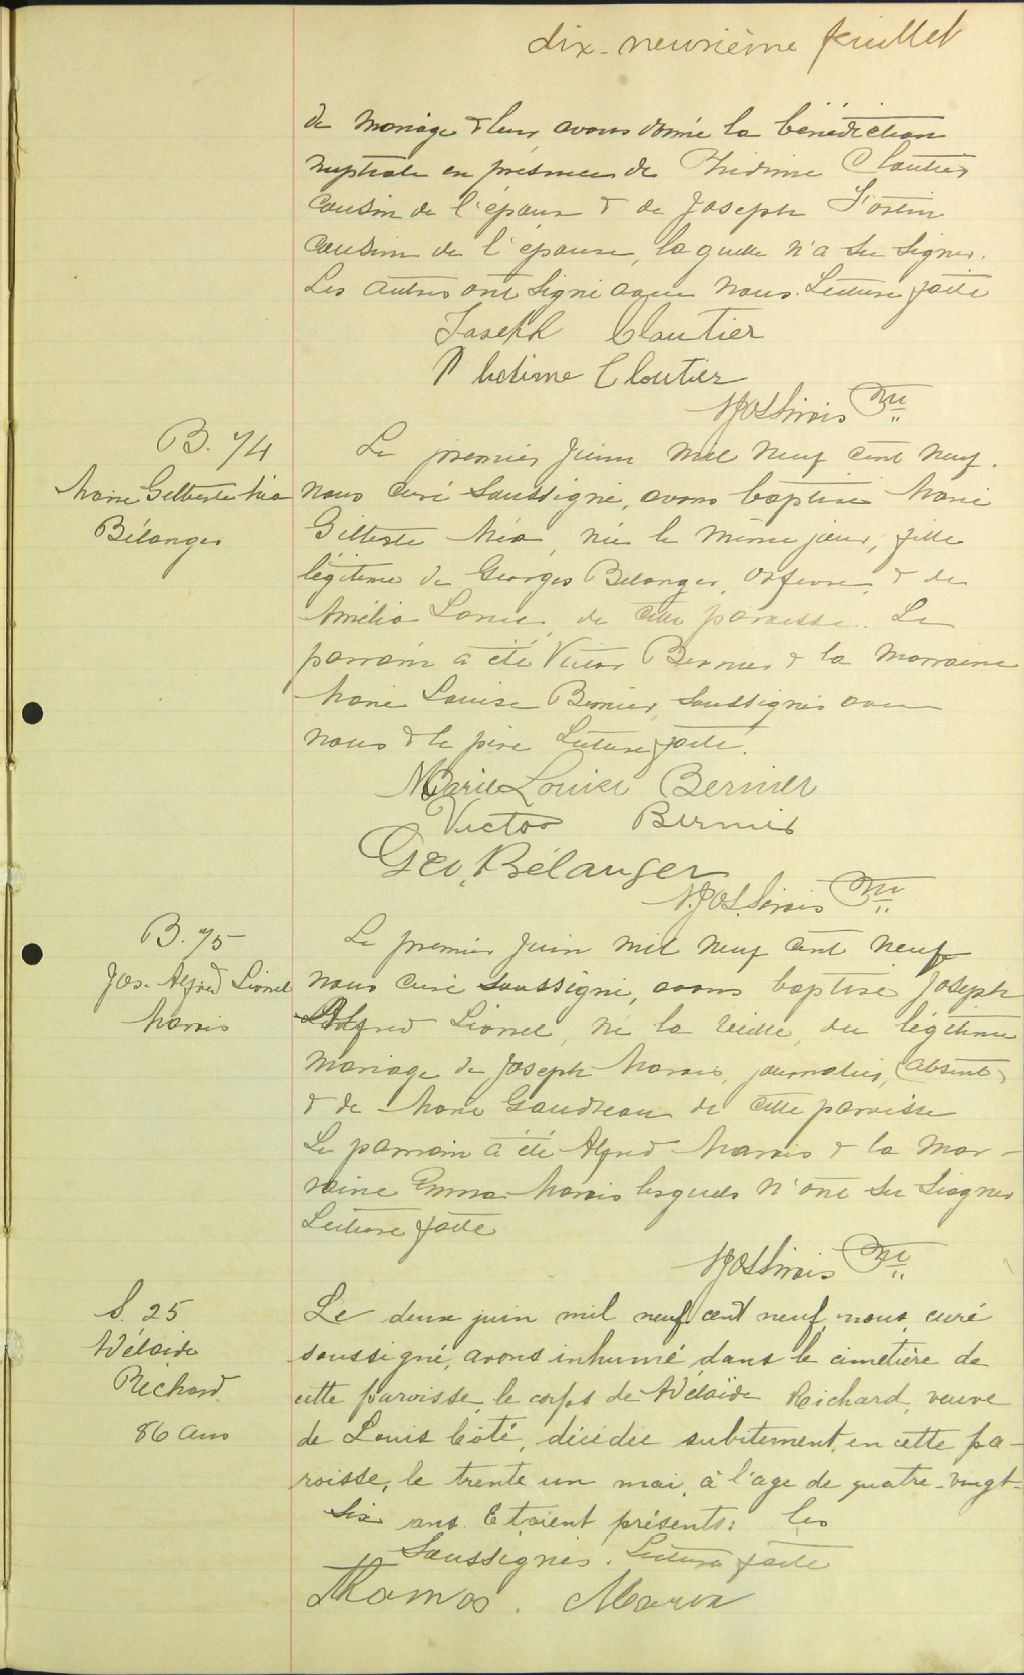 dix-neuvième feuillet
de mariage & leur avons donné la bénédiction
nuptiale en présence de Phidime Cloutier
cousin de l'époux & de Joseph Fortin
cousin de l'épouse, laquelle n'a su signer.
Les autres ont signé avec nous. Lecture faite
Joseph Cloutier
Phidime Cloutier
N. Jos. Sirois Ptre
B. 74
Marie Gilberte Mia
Bélanger
Le premier juin mil neuf cent neuf.
nous curé soussigné, avons baptisé Marie
Gilberte Mia, née le même jour, fille
légitime de Georges Belanger, orfèvre, & de
Amélia de cette paroisse. Le
parrain a été Victor Bernier & la marraine
Marie Louise Bernier, soussignés avec
nous & le père Lecture faite.
Marie Louise Bernier
Victor Bernier
Geo, Bélanger
N. Jos. Sirois Ptre
B. 75
Jos. Alfred Lionel
Marois
Le premier juin mil neuf cent neuf
nous curé soussigné, avons baptisé Joseph
Alfred Lionel, né la veille, du légitime
mariage de Joseph Marois, journalier, (absent)
& de Marie Gaudreau de cette paroisse
Le parrain a été Alfred Marois & la mar-
raine Emma Marois lesquels n'ont su signer
Lecture faite
N Jos Sirois Ptre
S. 25
Adélaide
Richard
86 ans
Le deux juin mil neuf cent neuf, nous, curé
soussigné, avons inhumé dans le cimetière de
cette paroisse, le corps de Adélaïde Richard, veuve
de Louis Côté, décédée subitement, en cette pa-
roisse, le trente un mai, à l'age de quatre-vingt-
six ans. Etaient présents: les
soussignés. Lecture faite
Thomas